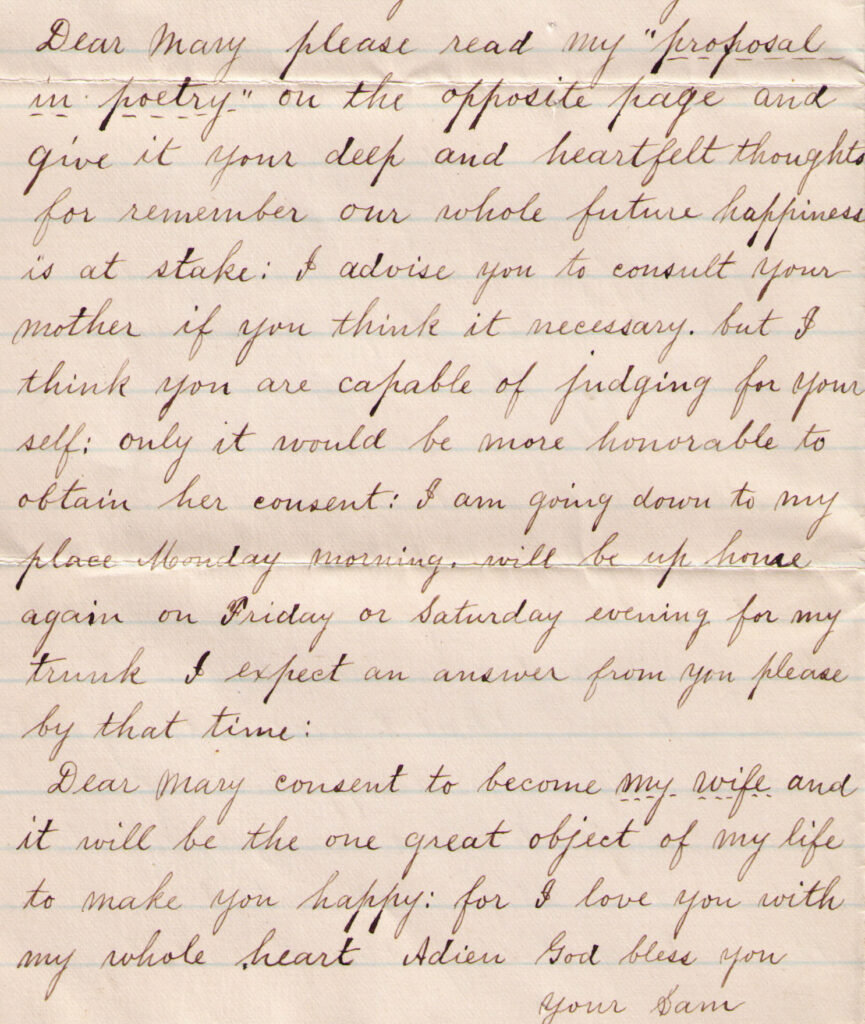 Dear Mary please read my "proposal
in poetry" on the opposite page and
give it your deep and heartfelt thoughts
for remember our whole future happiness
is at stake: I advise you to consult your
mother if you think it necessary. but I
think you are capable of judging for your
self: only it would be more honorable to
obtain her consent: I am going down to my
place Monday morning. will be up home
again on Friday or Saturday evening for my
trunk I expect an answer from you please
by that time:
Dear Mary consent to become my wife and
it will be the one great object of my life
to make you happy: for I love you with
my whole heart Adieu God bless you
your Sam